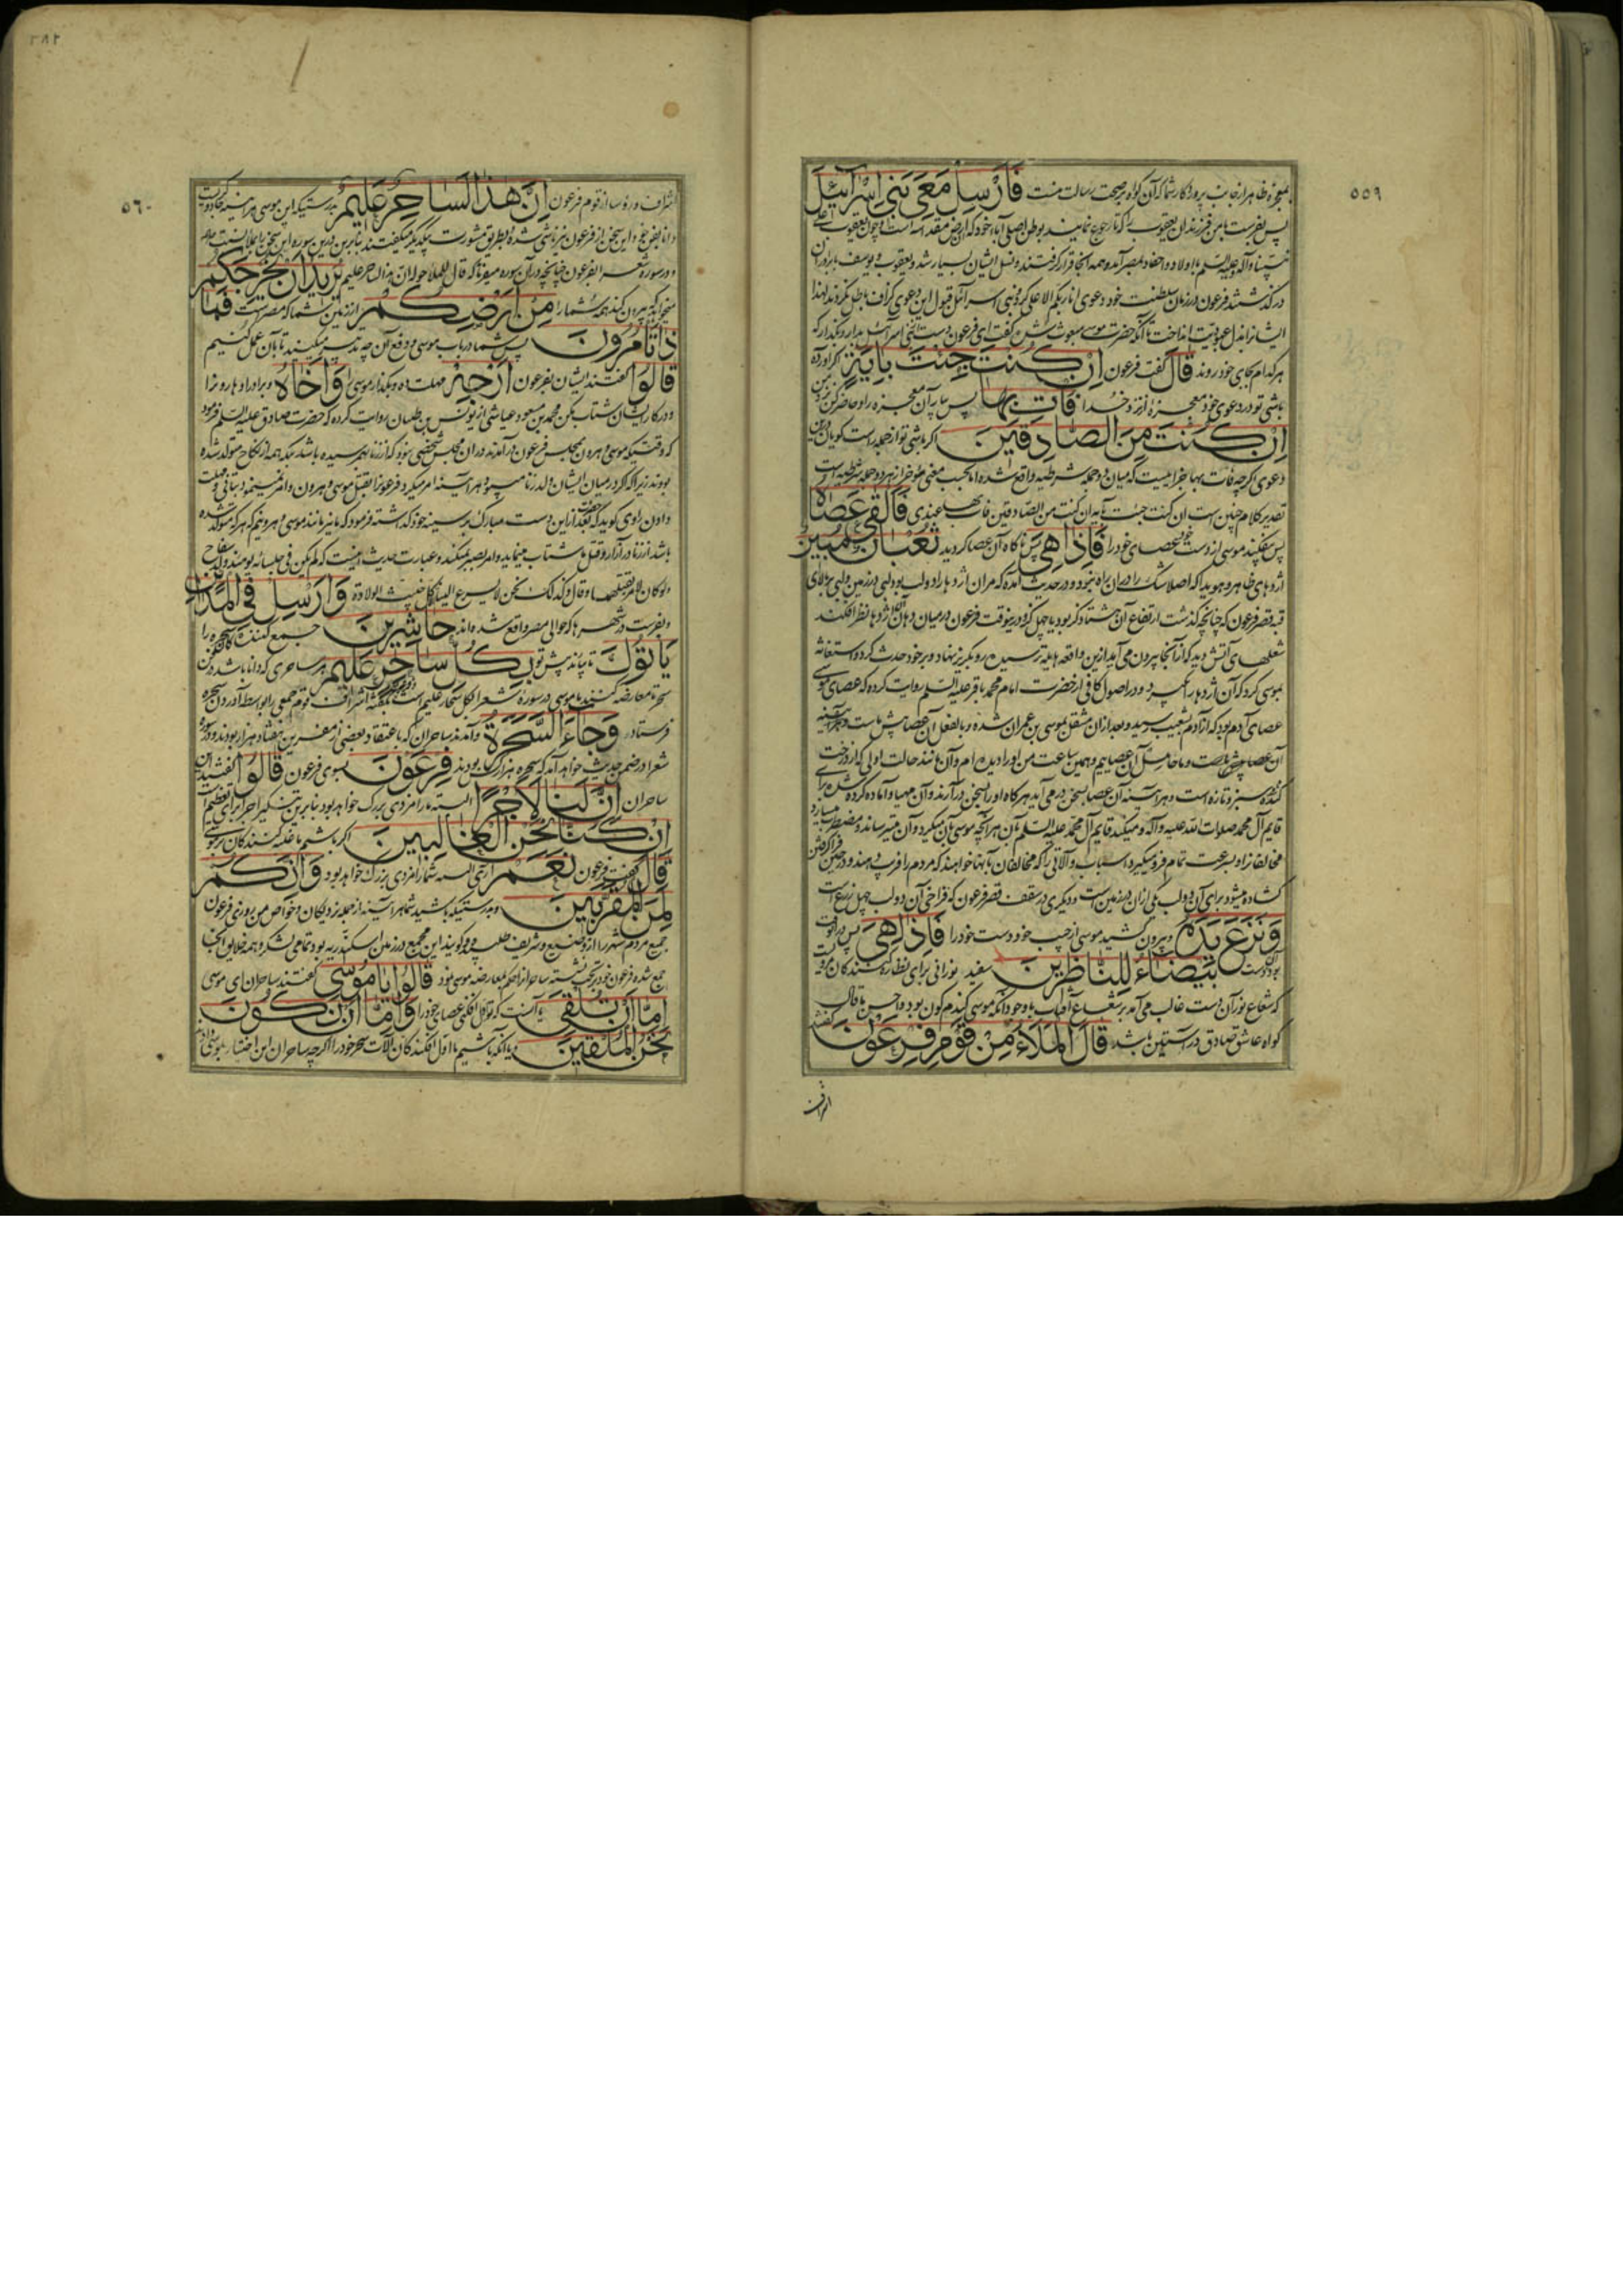 ٥٥٩
معجزه ظاهر از جانب پروردکار شما که آن کواه بر صحت رسالت منست فَاَرْسِلْ مَعِیَ بَنی اِسْرآئیلَ
پس بفرست با من فرزندان یعقوب را که تا رجوع نمایند بوطن اصلی آباء خود که ارض مقدسه است و چون یعقوب علی
نبینا و آله و علیه السلم با اولاد و احفاد بمصر آمد و همه آنجا قرار کرفتند و نسل ایشان بسیار شد و یعقوب و یوسف با برادران
در کذشتند فرعون در زمان سلطنت خود دعوی انا ربکم الاعلی کرد و بنی اسرآئیل قبول این دعوی کزاف باطل نکردند لهذا
ایشانرا بعبودیت انداخت تا آنکه حضرت موسی مبعوث شد کفت ای فرعون دست از بنی اسرآئیل بدار و بکذار که
هر کدام بجای خود روند قالَ کفت فرعون اِنْ کُنْتَ جِئْتَ بِایَةٍ اکر آورده
باشی تو در دعوی خود معجزه از نزد خدا فَاْتِ بِها پس بیار آن معجزه را و حاضر کن نزد من
اِنْ کُنْتَ مِنَ الصّادِقینَ اکر باشی تو از جمله راست کویان درین
دعوی اکرچه فات بها جزائیست که میان دو جمله شرطیه واقع شده اما بحسب معنی مؤخر از هر دو جمله شرطیه است
تقدیر کلام چنین است ان کنت جئت بآیة ان کنت من الصادقین فات بها عندی فَاَلْقی عَصاهُ
پس بیفکند موسی از دست خود عصای خود را فَاِذا هِیَ پس ناکاه آن عصا کردید ثُعْبانٌ مُبینٌ
اژدهای ظاهر و هویدا که اصلا شک را در آن راه نبود و در حدیث آمده که مران اژدها را دو لب بود لبی در زمین و لبی بر بالای
قبه قصر فرعون که چنانچه کذشت ارتفاع آن هشتاد کز بود یا چهل کز و درینوقت فرعون در میان دهان آن اژدها نظر افکند
شعلهای آتش دید که از آنجا بیرون می آید ازین واقعه هایله ترسیده رو بکریز نهاد و بر خود حدث کرد و استغاثه
بموسی کرد که آن اژدها را بگیرد و در اصول کافی از حضرت امام محمد باقر علیه السلم روایت کرده که عصای موسی
عصای آدم بود که از آدم بشعیب رسید و بعد از آن منتقل بموسی بن عمران شده و بالفعل آن عصا پیش ماست و هر آینه
آن عصا پیش ماست و همین ساعت من او را دیده ام و آن مانند حالت اولی که از درخت
کنده شده سبز و تازه است و هر آینه آن عصا بسخن در می آید هر کاه او را بسخن در آرند و آن مهیا و آماده کرده شده برای
قایم آل محمد صلوات الله علیه و آله و میکند قایم آل محمد علیه السلم بآن هر آنچه موسی بآن میکرد و آن میترساند و مضطرب میسازد
مخالفانرا و بسرعت تمام فرو میکیرد اسباب و آلاتی را که مخالفان بآنها خواهند که مردم را فریب دهند و در حین فرا کرفتن
کشاده میشود برای آن دو لب یکی از آن در زمین است و دیکری در سقف قصر فرعون که فراخی آن دو لب چهل ذرع است
وَ نَزَعَ یَدَهُ و بیرون کشید موسی از جیب خود دست خود را فَاِذا هِیَ پس در آنوقت
بود آن دست بَیْضآءُ لِلنّاظِرینَ سفید نورانی برای نظاره کنندکان مرویست
که شعاع نور آن دست غالب می آمد بر شعاع آفتاب با وجود آنکه موسی کندم کون بود
کواه عاشق صادق در آستین باشد قالَ الْمَلَاُ مِنْ قَوْمِ فِرْعَوْنَ کفتند
اشراف
٥٦٠
اشراف و رؤسا از قوم فرعون اِنَّ هذا لَساحِرٌ عَلیمٌ بدرستیکه این موسی هر آینه جادوکریست
دانا بفن خود و این سخن از فرعون نیز ناشی شده و بطریق مشورت بیکدیکر میکفتند بنابرین درین سوره این سخن را بملأ نسبت داد
و در سوره شعرا بفرعون چنانچه در آن سوره میفرماید که قال للملا حوله ان هذا لساحر علیم یُریدُ اَنْ یُخْرِجَکُمْ
میخواهد که بیرون کند همه شما را مِنْ اَرْضِکُمْ از زمین شما که مصر است فَما
ذا تَاْمُرُونَ پس شما در باب موسی و دفع آن چه تدبیر میکنید تا بآن عمل کنیم
قالُوا کفتند ایشان بفرعون اَرْجِهْ مهلت ده و بکذار موسی را وَ اَخاهُ و برادر او هارون را
و در کار ایشان شتاب مکن محمد بن مسعود عیاشی از یونس بن ظبیان روایت کرده که حضرت صادق علیه السلم فرمود
که وقتیکه موسی و هرون بمجلس فرعون در آمدند در آن مجلس شخصی نبود که از زنا بهم رسیده باشد بلکه همه از نکاح متولد شده
بودند زیرا که اکر در میان ایشان ولد زنا میبود هر آینه امر میکرد فرعون را بقتل موسی و هرون و امر نمینمود بتانی و مهلت
دادن راوی کوید که بعد از این حضرت دست مبارک بر سینه خود کذاشته فرمود که ما نیز مانند موسی و هرونیم که هر که متولد شده
باشد از زنا در آزار و قتل ما شتاب مینماید و امر بصبر نمیکند و عبارت حدیث اینست که لم یکن فی جلسائه یومئذ ولد سفاح
ولو کان لامر بقتلهما و قال و کذلک نحن لا یسرع الینا الا کل خبیث الولادة وَ اَرْسِلْ فِی الْمَدآئِنِ
و بفرست در شهرها که حوالی مصر واقع شده اند حاشِرینَ جمع کنندکان را
یَاْتُوکَ تا بیاند پیش تو بِکُلِّ ساحِرٍ عَلیمٍ هر ساحری که دانا باشد در فن
سحر تا معارضه کنند با موسی در سوره شعرا بکل سحار علیم است اشراف قوم جمعی را بواسطه آوردن سحره
فرستاد وَ جآءَ السَّحَرَةُ و آمدند ساحران که باعتقاد بعضی از مفسرین هفتاد هزار بودند و در سوره
شعرا در ضمن حدیث خواهد آمد که سحره هزار کس بودند فِرْعَوْنَ بسوی فرعون قالُوا کفتند آن
ساحران اِنَّ لَنا لَاَجْراً البته ما را مزدی بزرک خواهد بود بنابرین تنکیر اجر برای تعظیم است
اِنْ کُنّا نَحْنُ الْغالِبینَ اکر باشیم ما غلبه کنندکان بر موسی
قالَ کفت فرعون نَعَمْ آری البته شما را مزدی بزرک خواهد بود وَ اِنَّکُمْ
لَمِنَ الْمُقَرَّبینَ و بدرستیکه باشید شما هر آینه از جمله نزدیکان و خواص من پس روزی فرعون
جمیع مردم شهر را از وضیع و شریف طلبید و کویند این مجمع در زمین اسکندریه بود و تمامی لشکر و همه خلایق آنجا
جمع شده فرعون خود بر تخت نشسته ساحرانرا حکم بمعارضه موسی نمود قالُوا یا مُوسی کفتند ساحران ای موسی
اِمّا اَنْ تُلْقِیَ یا آنست که تو اول افکنی عصای خود را وَ اِمّا اَنْ نَکُونَ
نَحْنُ الْمُلْقینَ و یا آنکه باشیم ما اول افکندکان آلات سحر خود را اکرچه ساحران این اختیار بموسی دادند